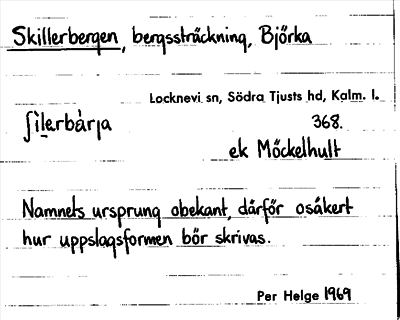 Skillerbergen, bergssträckning, Björka
Locknevi sn, Södra Tjusts hd, Kalm. l.
ʃìlerbàrja 368.
ek Möckelhult
Namnets ursprung obekant, därför osäkert
hur uppslagsformen bör skrivas.
Per Helge 1969